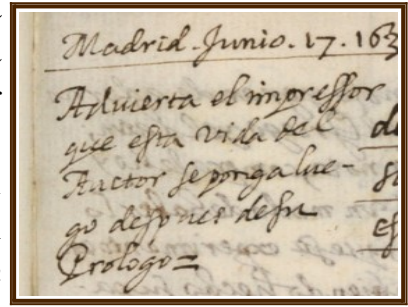 Madrid. Junio. 17. 163
Aduierta el impressor
que esta vida del
Auctor se ponga lue-
go despues de su
Prologo=